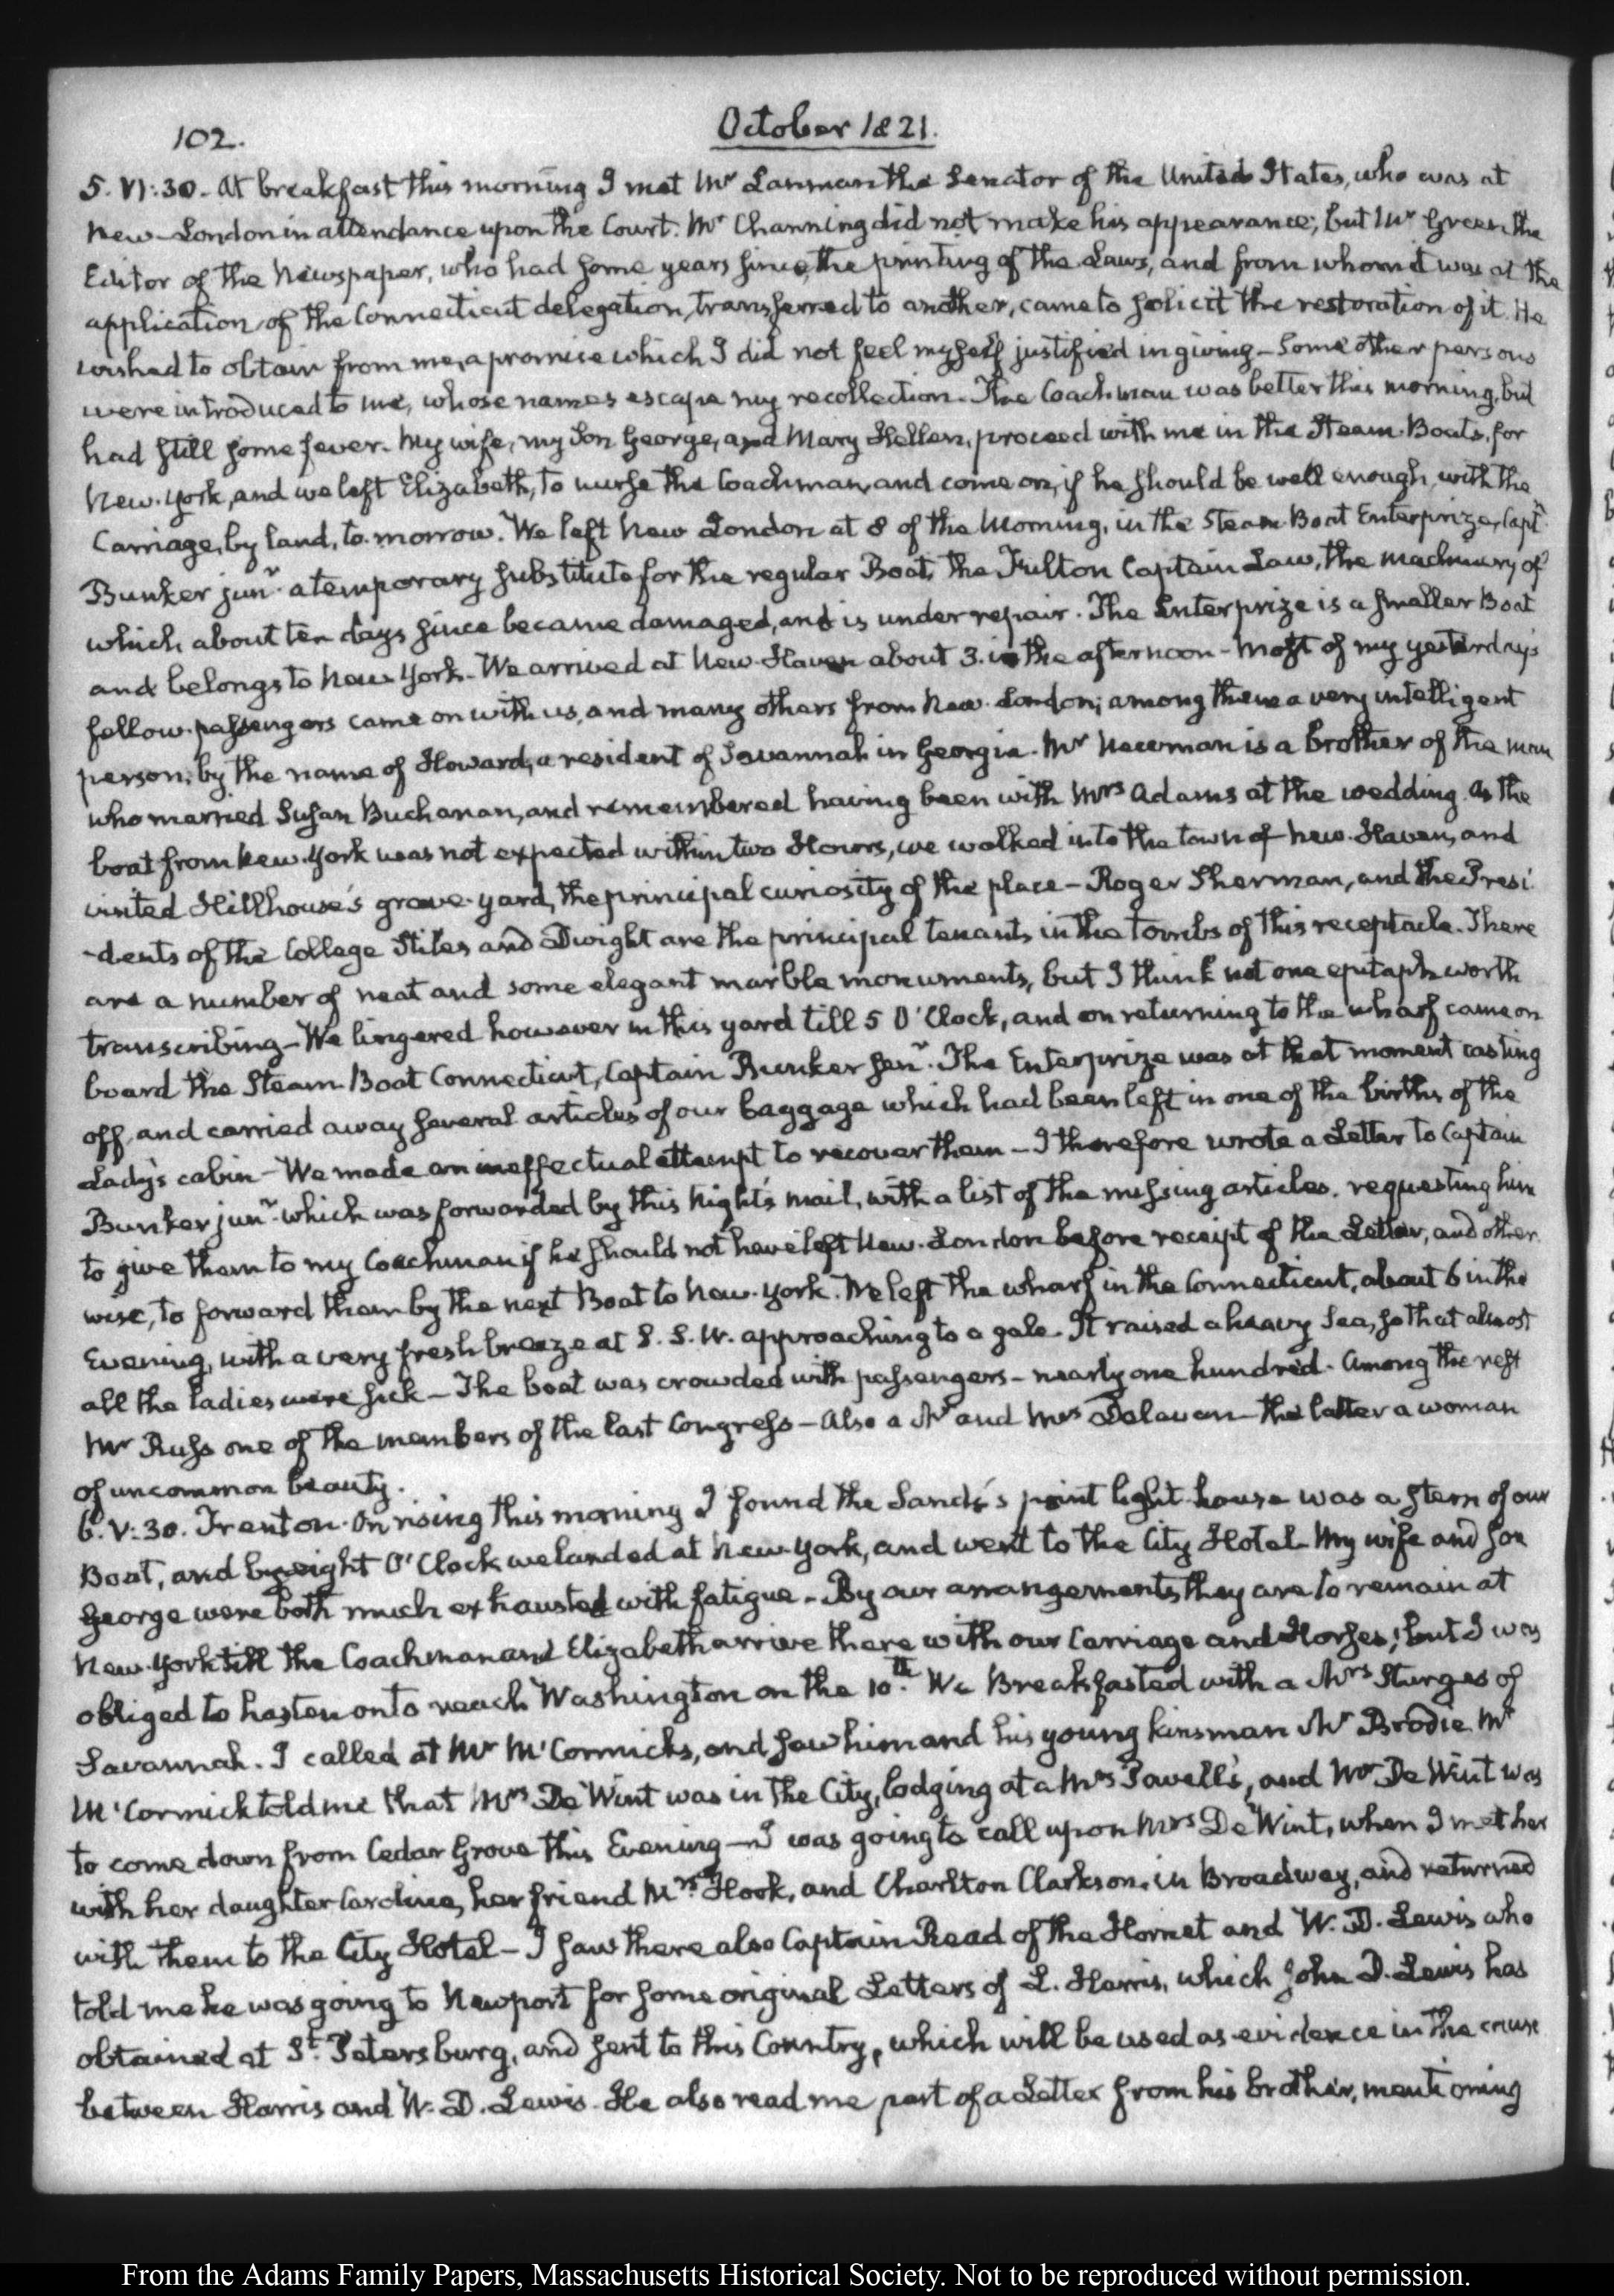 102.
October 1821.
5. VI:30. At breakfast this morning I met Mr Lanman the Senator of the United States, who was at
New-London in attendance upon the Court. Mr Channing did not make his appearance; but Mr Green the
Editor of the Newspaper, who had some years since, the printing of the Laws, and from whom it was at the
application of the Connecticut delegation, transferred to another, came to solicit the restoration of it. He
wished to obtain from me, a promise which I did not feel myself justified in giving - Some other persons
were introduced to me, whose names escape my recollection. The Coachman was better this morning, but
had still some fever. My wife, my Son George, and Mary Hellen, proceed with me in the Steam-Boats, for
New-York, and we left Elizabeth, to nurse the Coachman, and come on, if he should be well enough, with the
Carriage, by land, to-morrow. We left New London at 8 of the Morning, in the Steam-Boat Enterprize, Captn
Bunker junr. a temporary substitute for the regular Boat, the Fulton Captain Law, the machinery of
which about ten days since became damaged, and is under repair. The Enterprize is a smaller Boat
and belongs to New York. We arrived at New-Haven about 3. in the afternoon - Most of my yesterday's
fellow-passengers came on with us, and many others from New-London; among them a very intelligent
person, by the name of Howard, a resident of Savannah in Georgia. Mr Newman is a brother of the man
who married Susan Buchanan, and remembered having been with Mrs Adams at the wedding. As the
boat from New-York was not expected within two Hours, we walked into the town of New-Haven, and
visited Hillhouse's grave-yard, the principal curiosity of the place - Roger Sherman, and the Presi
-dents of the College Stiles and Dwight are the principal tenants in the tombs of this receptacle. There
are a number of neat and some elegant marble monuments, but I think not one epitaph worth
transcribing - We lingered however in this yard till 5 O'Clock, and on returning to the wharf came on
board the Steam-Boat Connecticut, Captain Bunker senr. The Enterprize was at that moment casting
off, and carried away several articles of our baggage which had been left in one of the births of the
Lady's cabin - We made an ineffectual attempt to recover them - I therefore wrote a Letter to Captain
Bunker junr. which was forwarded by this Night's mail, with a list of the missing articles, requesting him
to give them to my Coachman if he should not have left New-London before receipt of the Letter, and other
wise, to forward them by the next Boat to New-York. We left the wharf in the Connecticut, about 6 in the
Evening, with a very fresh breeze at S.S.W. approaching to a gale. It raised a heavy Sea, so that almost
all the ladies were sick - The boat was crowded with passengers - nearly one hundred. Among the rest
Mr Russ one of the members of the last Congress - Also a Mr and Mrs Delavan - the latter a woman
of uncommon beauty.
6. V:30. Trenton. On rising this morning I found the Sands's point light-house was a stern of our
Boat, and by eight O'Clock we landed at New-York, and went to the City Hotel. My wife and son
George were both much exhausted with fatigue - By our arrangements, they are to remain at
New-York till the Coachman and Elizabeth arrive there with our Carriage and Horses; but I was
obliged to hasten on to reach Washington on the 10th. We Breakfasted with a Mrs Sturges of
Savannah. I called at Mr McCormicks, and saw him and his young kinsman Mr Brodie. Mr
McCormick told me that Mrs De Wint was in the City, lodging at a Mrs Powell's, and Mr De Wint was
to come down from Cedar Grove this Evening - I was going to call upon Mrs De Wint, when I met her
with her daughter Caroline, her friend Mrs Hook, and Charlton Clarkson, in Broadway, and returned
with them to the City Hotel - I saw there also Captain Read of the Hornet and W. D. Lewis who
told me he was going to Newport for some original Letters of L. Harris, which John D. Lewis has
obtained at St. Petersburg, and sent to this Country, which will be used as evidence in the cause
between Harris and W. D. Lewis. He also read me part of a Letter from his brother, mentioning
From the Adams Family Papers, Massachusetts Historical Society. Not to be reproduced without permission.